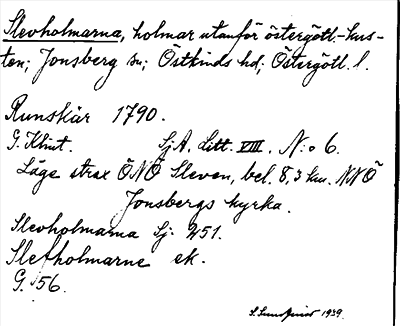 Slevholmarna, holmar utanför östergötl.-kus-
ten; Jonsberg sn; Östkinds hd; Östergötl. l.
Runskär 1790.
G. Klint. Sj.A. Litt. VIII. N:o 6.
Läge strax ÖNÖ Sleven, bel. 8,3 km. NNÖ
Jonsbergs kyrka.
Slevholmarna Sj. 251.
Slefholmarne ek.
G. 56.
S. Lundqvist 1939.